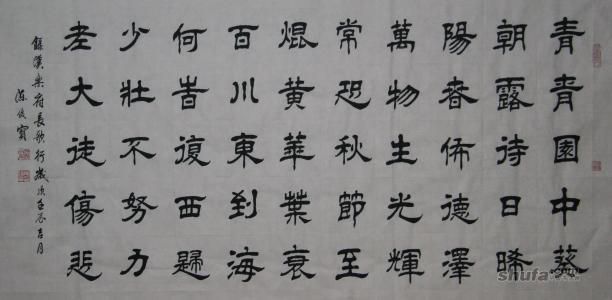 青青園中葵
朝露待日晞
陽春佈德澤
萬物生光輝
常恐秋節至
焜黃華葉衰
百川東到海
何旹復西歸
少壯不努力
老大徒傷悲
錄漢樂府長歌行歲次吉月